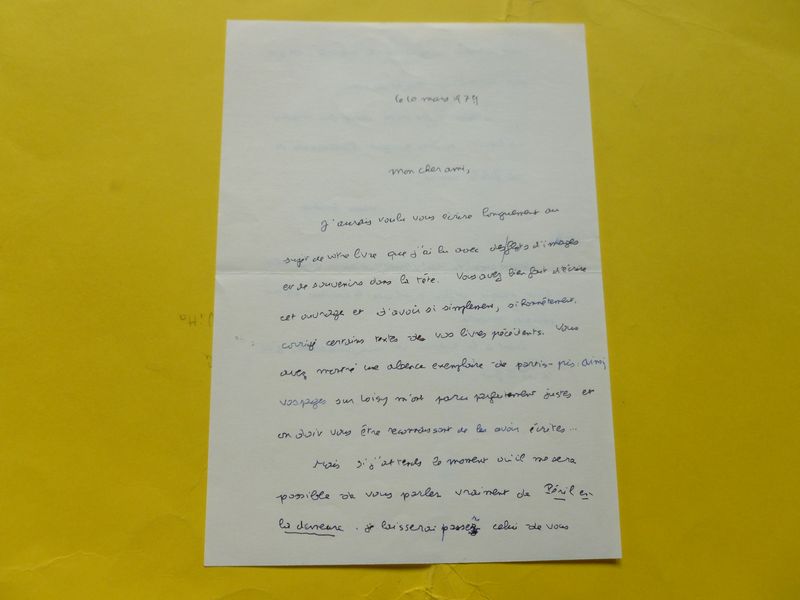 le 10 mars 1979
Mon cher ami,
J'aurais voulu vous écrire longuement au
sujet de votre livre que j'ai lu avec des flots d'images
et de souvenirs dans la tête. Vous avez bien fait d'écrire
cet ouvrage et d'avoir si simplement, si honnêtement,
corrigé certains textes de vos livres précédents. Vous
avez montré une absence exemplaire de partis-pris. Ainsi
vos pages sur Loisy m'ont paru parfaitement justes et
on doit vous être reconnaissant de les avoir écrites...
Mais si j'attends le moment où il me sera
possible de vous parler vraiment de Péril en
la demeure. je laisserai passer celui de vous